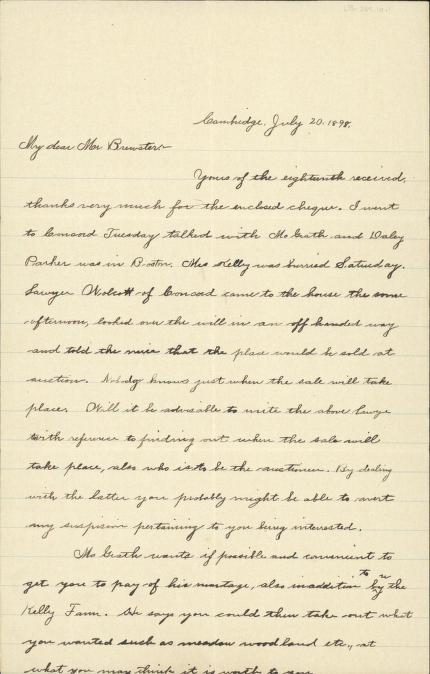 Cambridge, July 20. 1898.
My dear Mr Brewster:-
Yours of the eighteenth received,
thanks very much for the enclosed cheque. I went
to Concord Tuesday talked with McGrath and Daly
Parker was in Boston. Mrs Kelly was burried Saturday.
Lawyer Wolcott of Concord came to the house the same
afternoon, looked over the will in an off handed way
and told the niece that the place would be sold at
auction. Nobody knows just when the sale will take
place. Will it be advisable to write the above lawyer
with reference to finding out when the sale will
take place, also who is to be the auctioneer. By dealing
with the latter you probably might be able to avert
any suspision pertaining to you being interested.
McGrath wants if possible and convenient to
get you to pay of his mortage, also in addition to buy the
Kelly Farm. He says you could then take out what
you wanted such as meadow woodland etc., at
what you may think it is worth to you